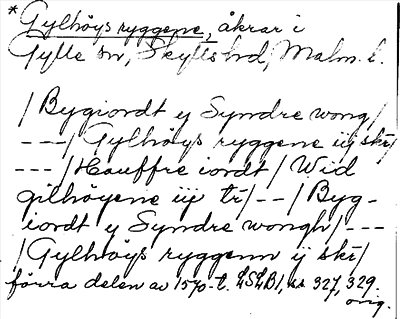 * Gylhöys ryggene, åkrar i
Gylle sn, Skytts hd, Malm. l.
/ Bygiordt y Syndre wong /
--- / Gylhöys ryggene iij skr /
--- / Hauffre iordt / Wid
gilhöyene iij tr / -- / Byg-
iordt y Syndre wongh / ---
/ Gylhöys ryggenn ij skr /
förra delen av 1570-t. LSLB1, ss 327, 329.
orig.